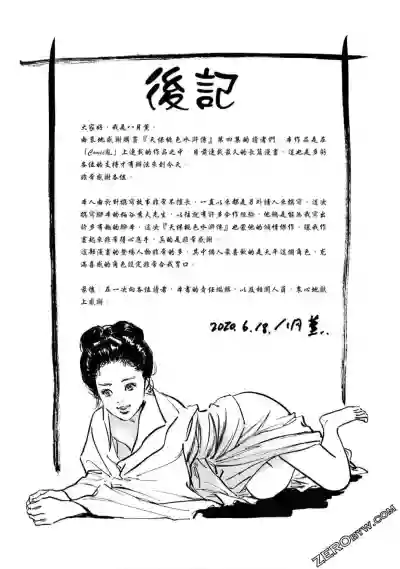 後記
大家好，我是八月薰。
由衷地感謝購買『天保桃色水滸傳』第四集的讀者們 本作品是在
「Comic亂」上連載的作品之中 目前連載最久的長篇漫畫。這也是多虧
各位的支持才有辦法來到今天。
非常感謝各位。
本人由於對撰寫故事非常不擅長，一直以來都是另外請人來撰寫。這次
撰寫腳本的 大先生，以往就有許多合作經驗，他總是能為我寫出
許多有趣的腳本。這次『天保桃色水滸傳』也蒙他的傾情 作，讓我作
畫起來非常得心應手，真的是非常感謝。
這部漫畫的登場人物非常的多，其中個人最喜歡的是天年這個角色，充
滿喜感的角色設定非常合我胃口。
最後，在一次向各位讀者，本書的責任編輯，以及相關人員，衷心地獻
上感謝。
2020.6.18. 八月薫.
ZEROBYW.COM